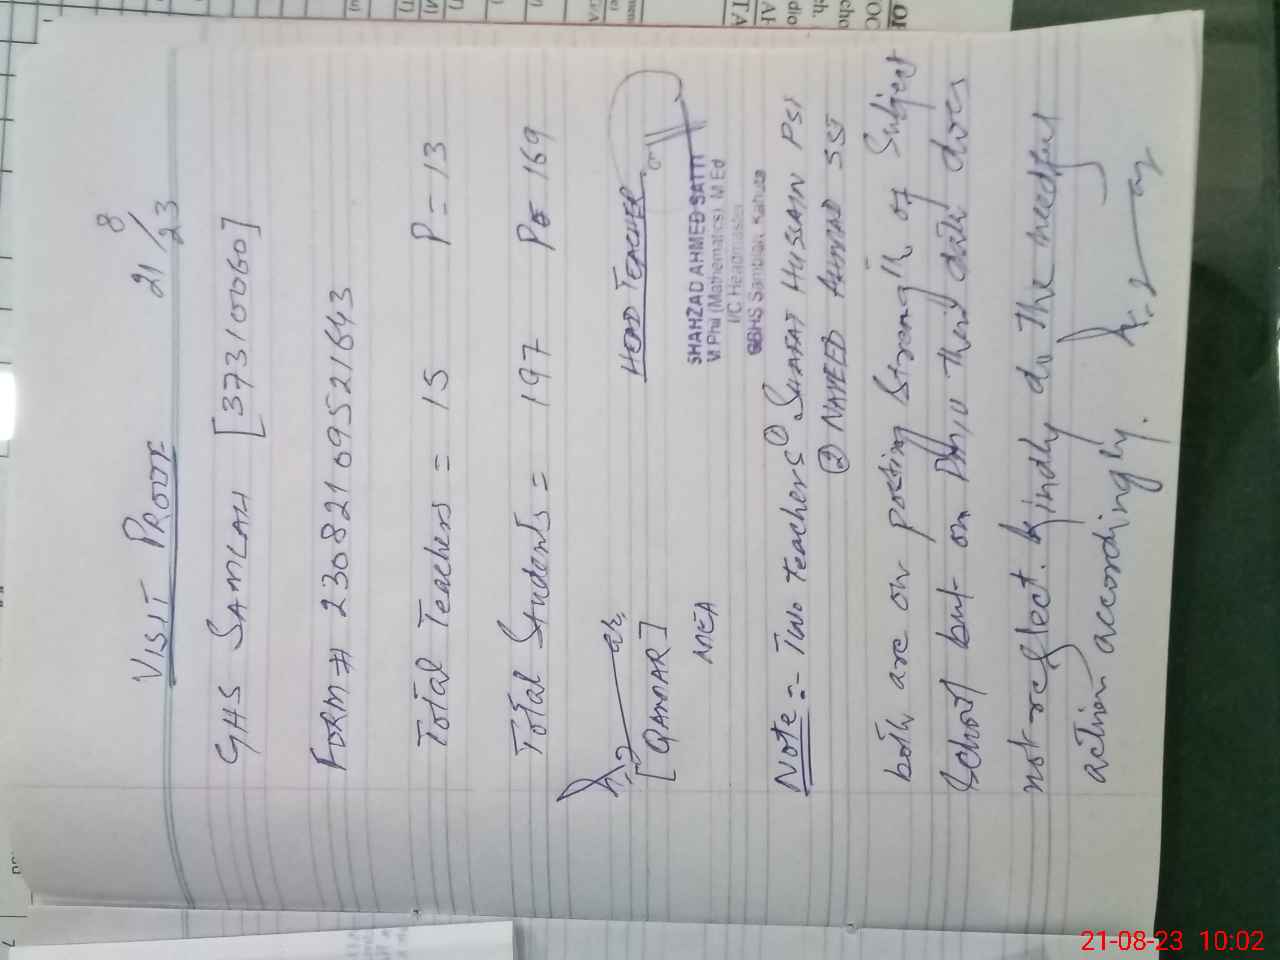 VISIT PROOF 21/8/23
GHS SAMLAH [37310060]
FORM # 23082109521643
Total Teachers = 15 P = 13
Total Students = 197 P = 169
[QAMMAR] HEAD TEACHER
MEA
SHAHZAD AHMED SATTI
M Phil (Mathematics) M Ed
I/C Headmaster
GBHS Samblah, Kahuta
Note :- Two teachers ① SHAFAT HUSSAIN PST
② NAVEED AHMAD SST
both are on posting strength of subject
School but on their data does
not reflect. kindly do the needful
action accordingly.
21-08-23 10:02